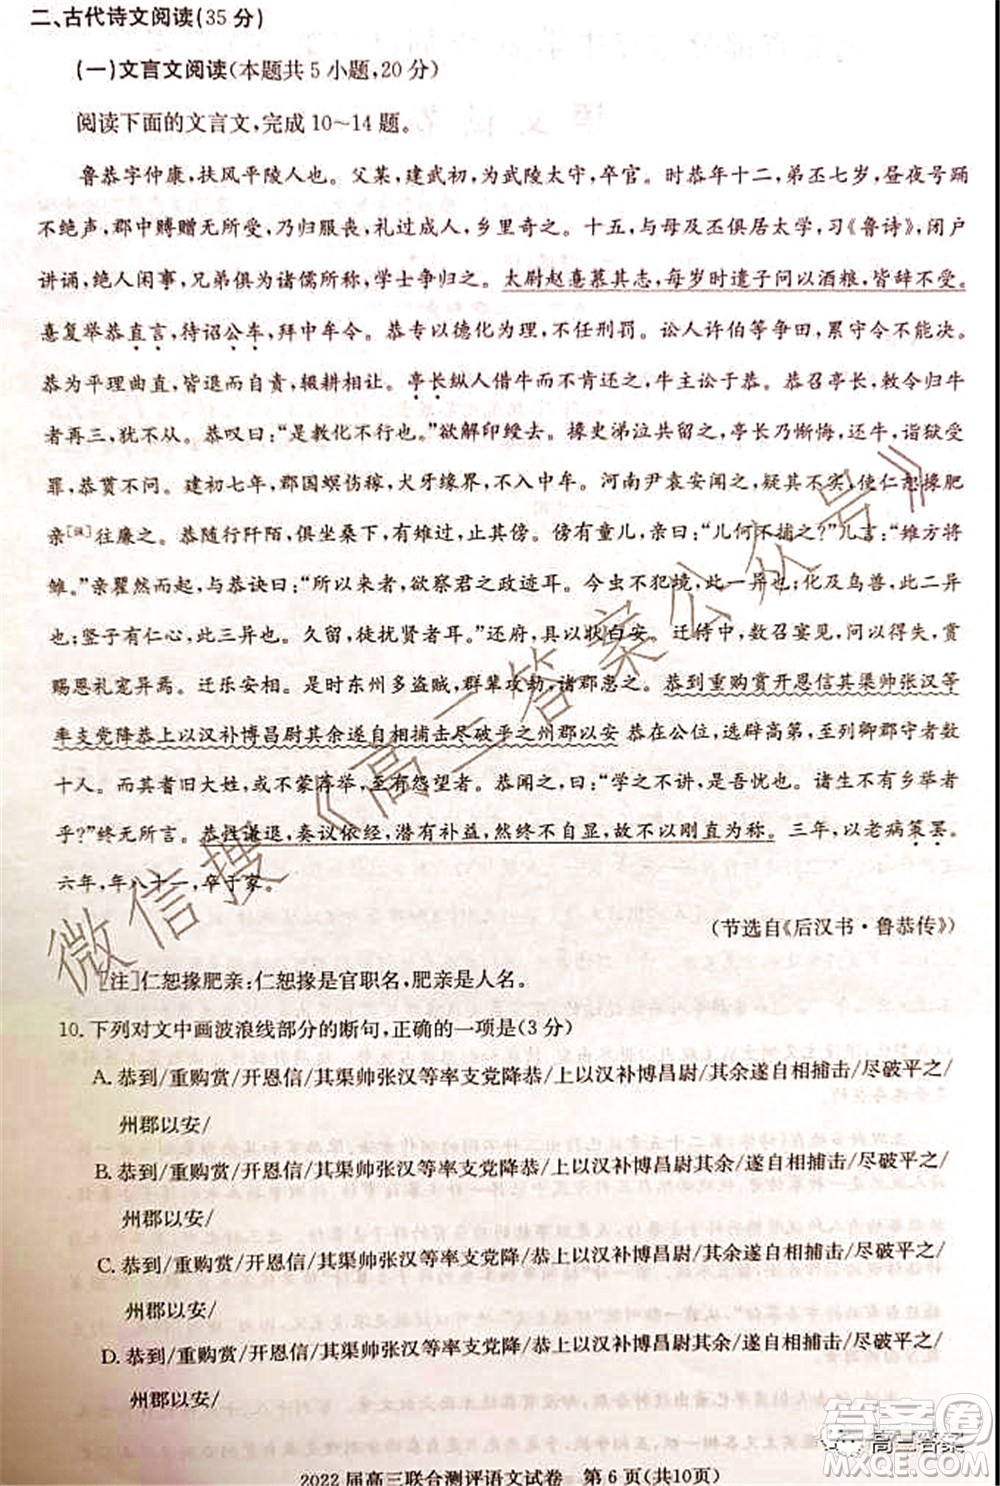 二、古代诗文阅读(35分)
(一)文言文阅读(本题共5小题,20分)
阅读下面的文言文,完成10~14题。
鲁恭字仲康,扶风平陵人也。父某,建武初,为武陵太守,卒官。时恭年十二,弟丕七岁,昼夜号踊
不绝声,郡中赙赠无所受,乃归服丧,礼过成人,乡里奇之。十五,与母及丕俱居太学,习《鲁诗》,闭户
讲诵,绝人间事,兄弟俱为诸儒所称,学士争归之。太尉赵憙慕其志,每岁时遣子问以酒粮,皆辞不受。
憙复举恭直言,待诏公车,拜中牟令。恭专以德化为理,不任刑罚。讼人许伯等争田,累守令不能决,
恭为平理曲直,皆退而自责,辍耕相让。亭长纵人借牛而不肯还之,牛主讼于恭。恭召亭长,敕令归牛
者再三,犹不从。恭叹曰:“是教化不行也。”欲解印绶去。掾史涕泣共留之,亭长乃惭悔,还牛,诣狱受
罪,恭贳不问。建初七年,郡国螟伤稼,犬牙缘界,不入中牟。河南尹袁安闻之,疑其不实,使仁恕掾肥
亲[注]往廉之。恭随行阡陌,俱坐桑下,有雉过,止其傍。傍有童儿,亲曰:“儿何不捕之?”儿言:“雉方将
雏。”亲瞿然而起,与恭诀曰:“所以来者,欲察君之政迹耳。今虫不犯境,此一异也;化及鸟兽,此二异
也;竖子有仁心,此三异也。久留,徒扰贤者耳。”还府,具以状白安。迁侍中,数召宴见,问以得失,赏
赐恩礼宠异焉。迁乐安相。是时东州多盗贼,群辈攻劫,诸郡患之。恭到重购赏开恩信其渠帅张汉等
率支党降恭上以汉补博昌尉其余遂自相捕击尽破平之州郡以安 恭在公位,选辟高第,至列卿郡守者数
十人。而其耆旧大姓,或不蒙荐举,至有怨望者。恭闻之,曰:“学之不讲,是吾忧也。诸生不有乡举者
乎?”终无所言。恭性谦退,奏议依经,潜有补益,然终不自显,故不以刚直为称。三年,以老病策罢。
六年,年八十一,卒于家。
(节选自《后汉书·鲁恭传》)
[注]仁恕掾肥亲:仁恕掾是官职名,肥亲是人名。
10.下列对文中画波浪线部分的断句,正确的一项是(3分)
A.恭到/重购赏/开恩信/其渠帅张汉等率支党降恭/上以汉补博昌尉/其余遂自相捕击/尽破平之/
州郡以安/
B.恭到/重购赏/开恩信/其渠帅张汉等率支党降恭/上以汉补博昌尉其余/遂自相捕击/尽破平之/
州郡以安/
C.恭到/重购赏/开恩信/其渠帅张汉等率支党降/恭上以汉补博昌尉/其余遂自相捕击/尽破平之/
州郡以安/
D.恭到/重购赏/开恩信/其渠帅张汉等率支党降/恭上以汉补博昌尉其余/遂自相捕击/尽破平之/
州郡以安/
2022届高三联合测评语文试卷 第6页(共10页)
微信搜《高三答案公众号》
答案圈
高三答案